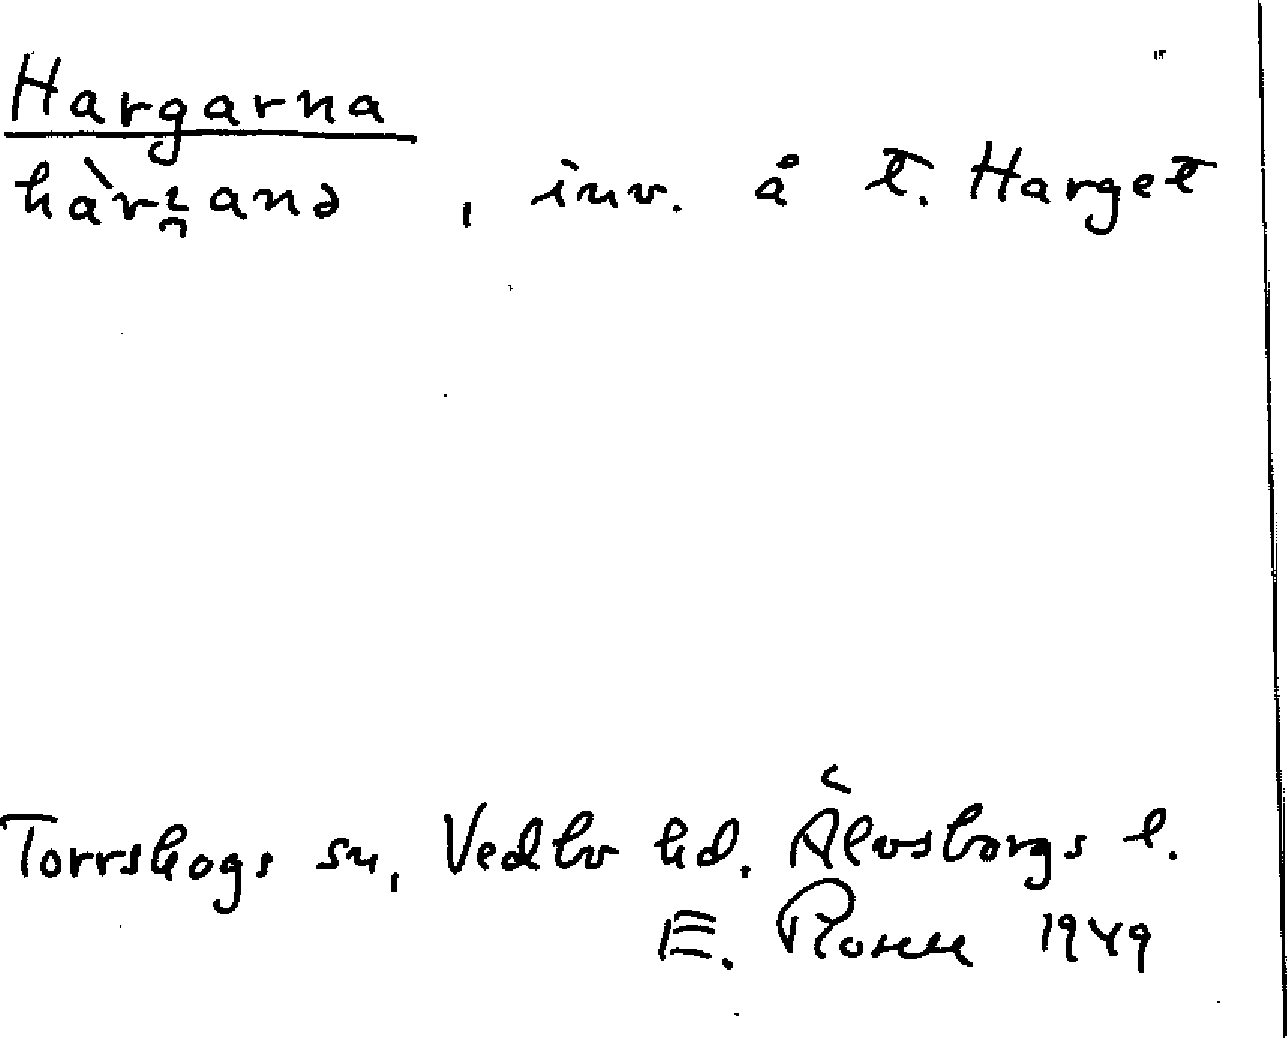 Hargarna
, inv. å t. Harget
Torrskogs sn, Vedbo hd. Älvsborgs l.
E. Rosell 1949